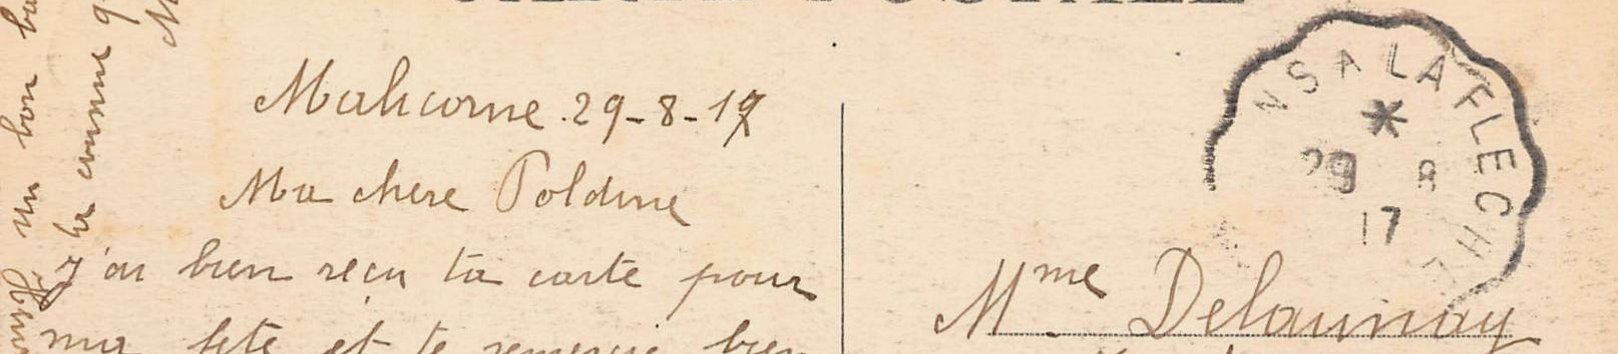 CARTE POSTALE
Malicorne. 29-8-17
Ma chere Poldine
j'ai bien recu ta carte pour
ma fete et te remercie bien
NS A LA FLECHE
29 8
17
Mme Delaunay
un bon
comme